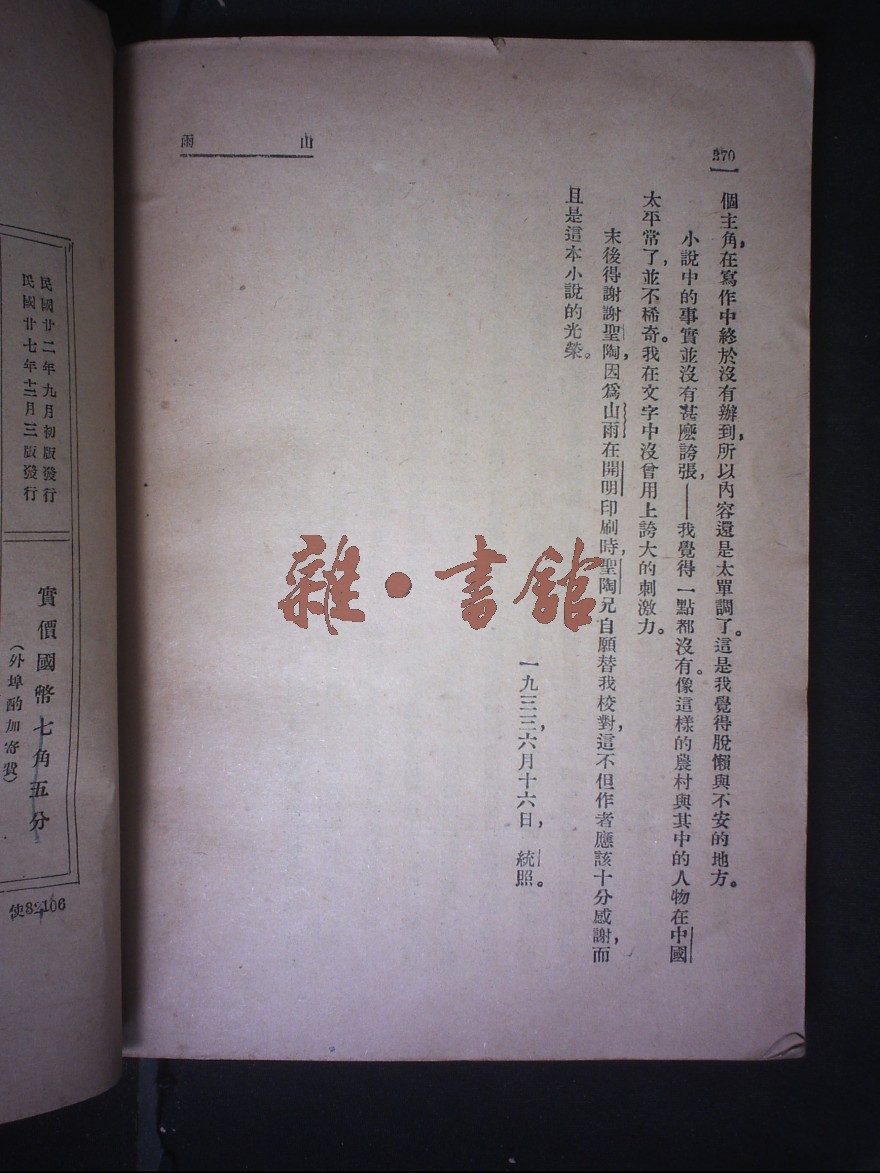 山雨
270
個主角,在寫作中終於沒有辦到,所以內容還是太單調了。這是我覺得脫懶與不安的地方。
小說中的事實並沒有甚麽誇張,——我覺得一點都沒有。像這樣的農村與其中的人物在中國
太平常了,並不稀奇。我在文字中沒曾用上誇大的刺激力。
末後得謝謝聖陶,因爲山雨在開明印刷時,聖陶兄自願替我校對,這不但作者應該十分感謝,而
且是這本小說的光榮。
一九三三,六月十六日, 統照。
雜·書館
民國廿二年九月初版發行
民國廿七年十二月三版發行
實價國幣七角五分
(外埠酌加寄費)